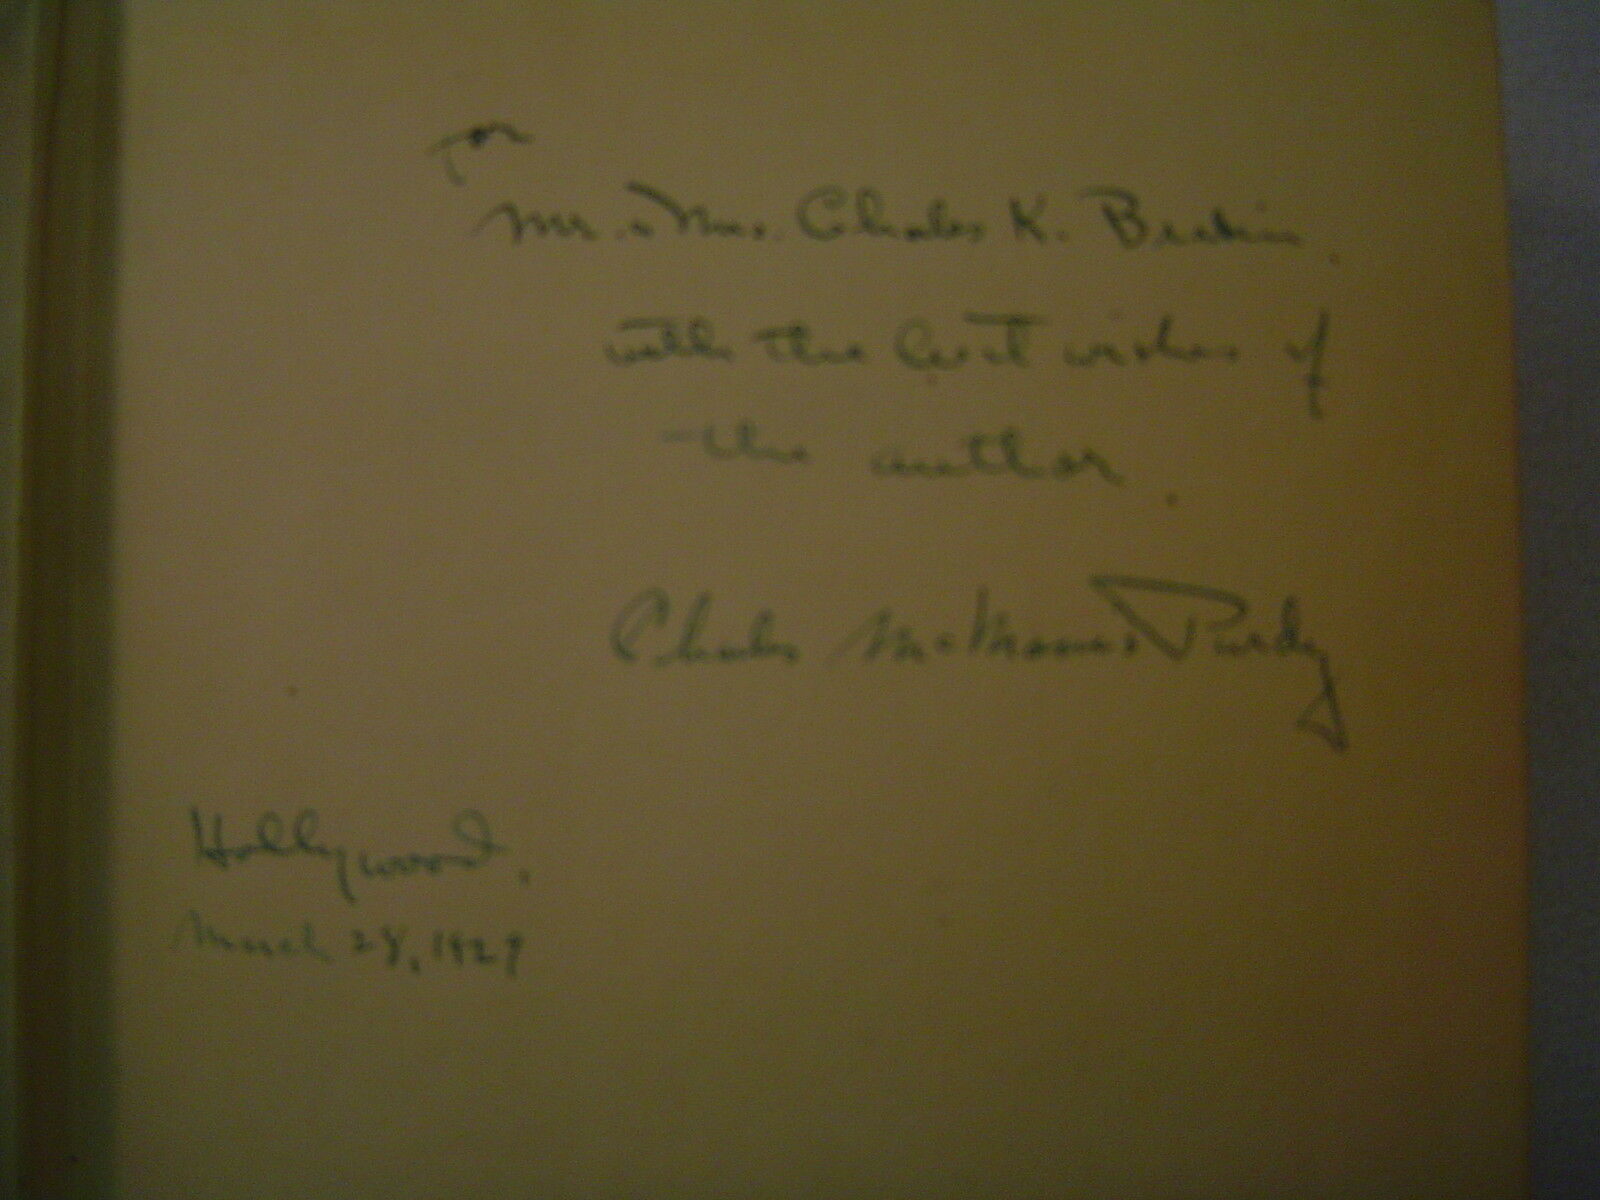 for
Mr. & Mrs. Charles K.
with the best wishes of
the author.
Charles McManus Purdy
Hollywood,
March 28, 1929